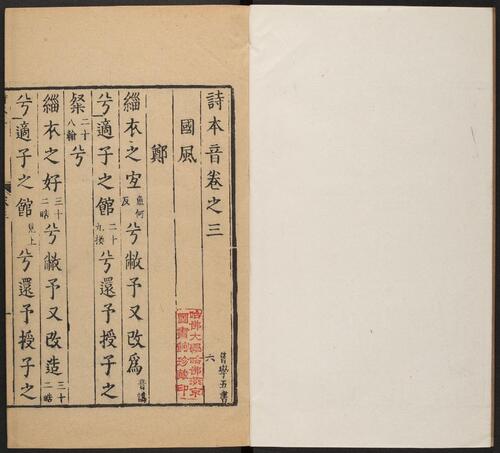 詩本音卷之三
音學五書
六
哈佛大學哈佛燕京
圖書館珍藏印
國風
鄭
緇衣之宜魚何反兮敝予又改爲音譌
兮適子之館二十九換兮還予授子之
粲二十八翰兮
緇衣之好三十二皓兮敝予又改造三十二皓
兮適子之館見上兮還予授子之